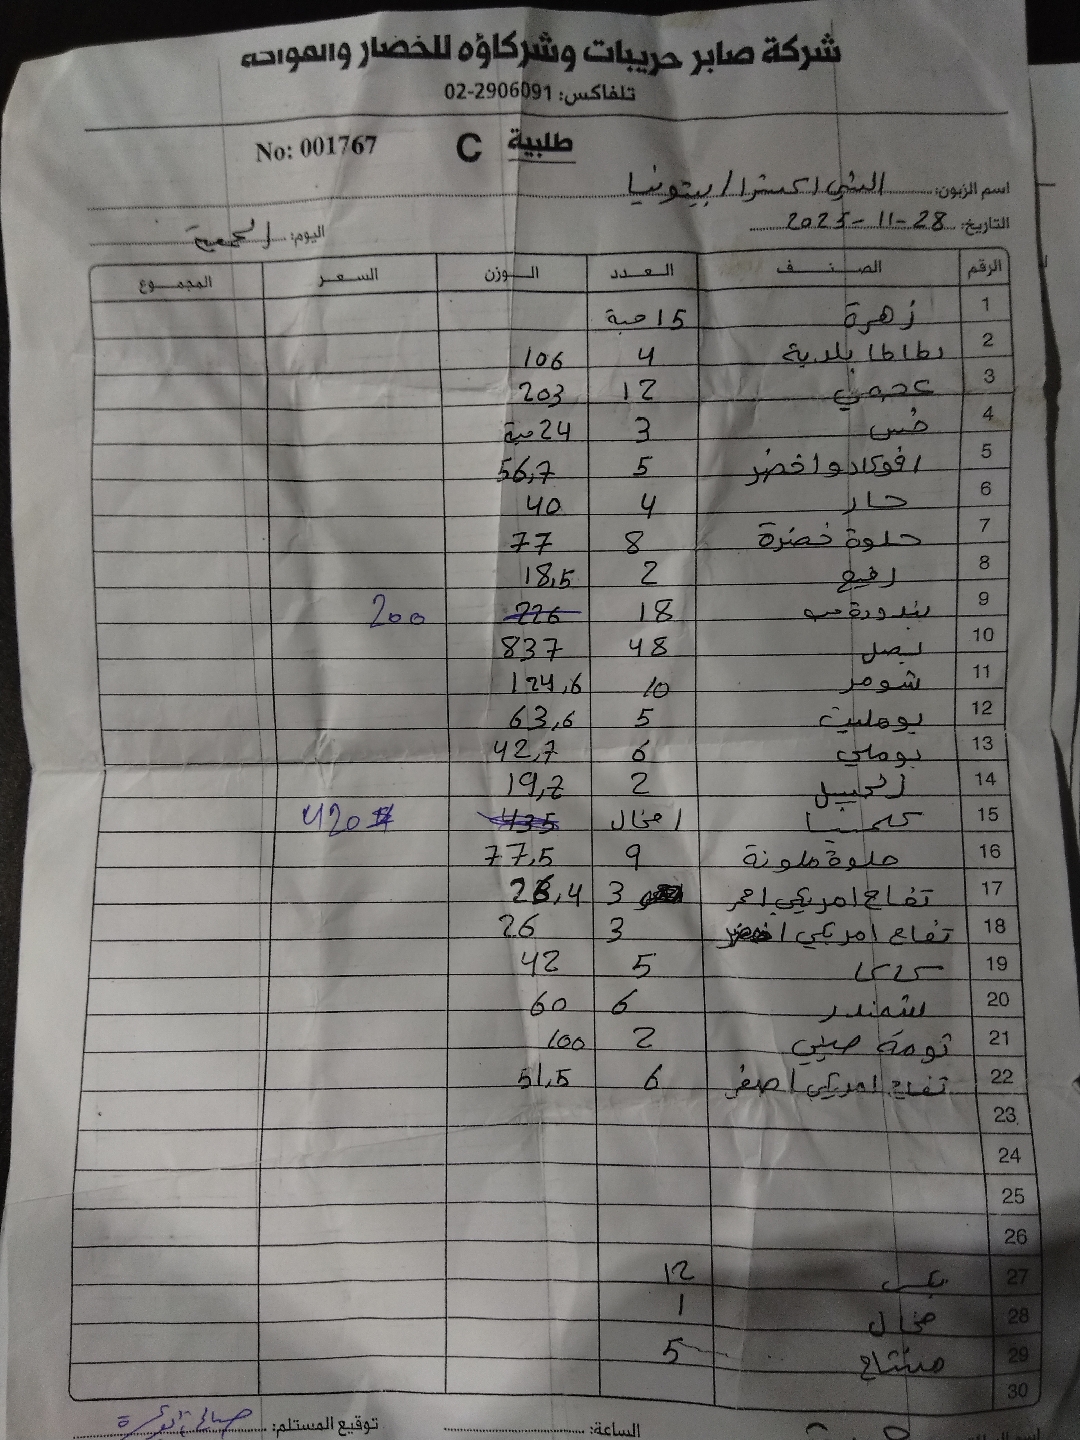 شركة صابر حريبات وشركاؤه للخضار والفواكه
تلفاكس: 02-2906091
طلبية C No: 001767
اسم الزبون: اكسترا / بيتونيا
التاريخ: 28-11-2025 اليوم: الجمعة
الرقم الصنف العدد الوزن السعر المجموع
1 زهرة 15 حبة
2 بطاطا بلدية 4 106
3 عجمي 12 203
4 خس 3 24 حبة
5 افوكادو اخضر 5 56,7
6 حار 4 40
7 حلوة خضرة 8 77
8 رفيع 2 18,5
9 بندورة 18 226 200
10 بصل 48 837
11 شومر 10 124,6
12 بومليت 5 63,6
13 بوملي 6 42,7
14 زنجبيل 2 19,2
15 كلمنتينا 1 مخال 435 420
16 حلوة ملونة 9 77,5
17 تفاح امريكي احمر 3 26,4
18 تفاح امريكي اخضر 3 26
19 5 42
20 شمندر 6 60
21 تومة صيني 2 100
22 تفاح امريكي اصفر 6 51,5
23
24
25
26
27 بكس 12
28 مخال 1
29 مشتاح 5
30
الساعة: توقيع المستلم: